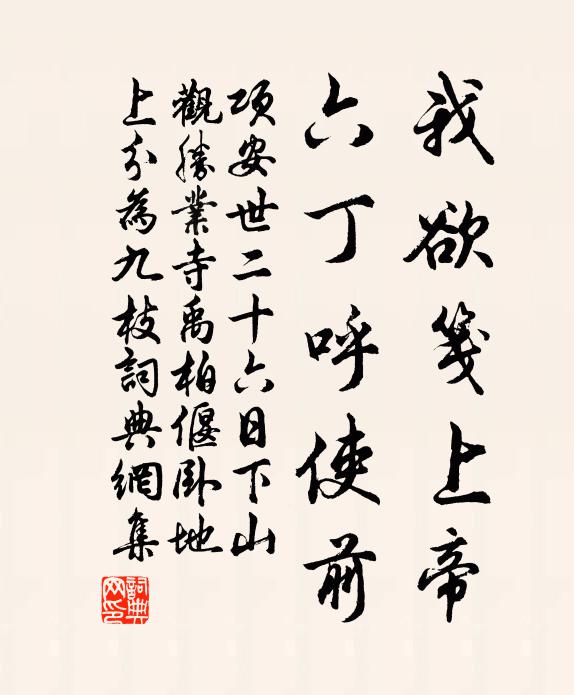 我欲箋上帝
六丁呼使前
項安世二十六日下山
觀勝業寺禹柏偃臥地
上分為九枝詞典網集
詞典
网印